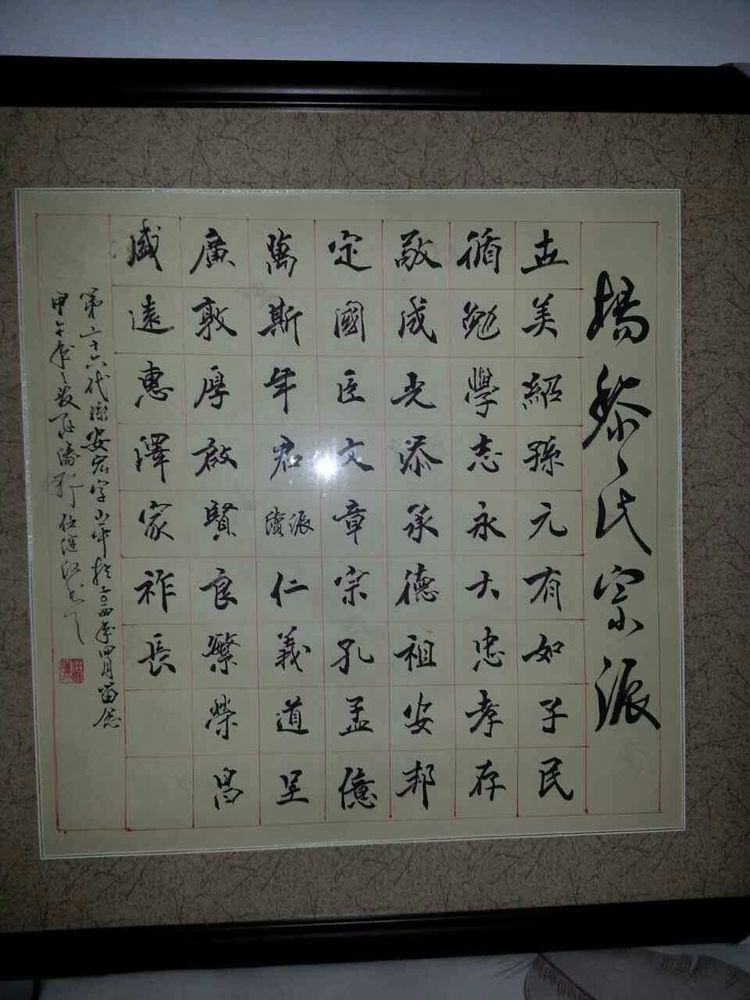 楊黎氏宗派
五美紹孫元有如子民
循勉學志永大忠孝存
敬成光添承德祖安邦
定國臣文章宗孔孟億
萬斯年君續派仁義道呈
廣敦厚啟賢良繁榮昌
盛遠惠澤家祚長
第二十六代 安宏字山中於二〇一四年四月留念
甲午年